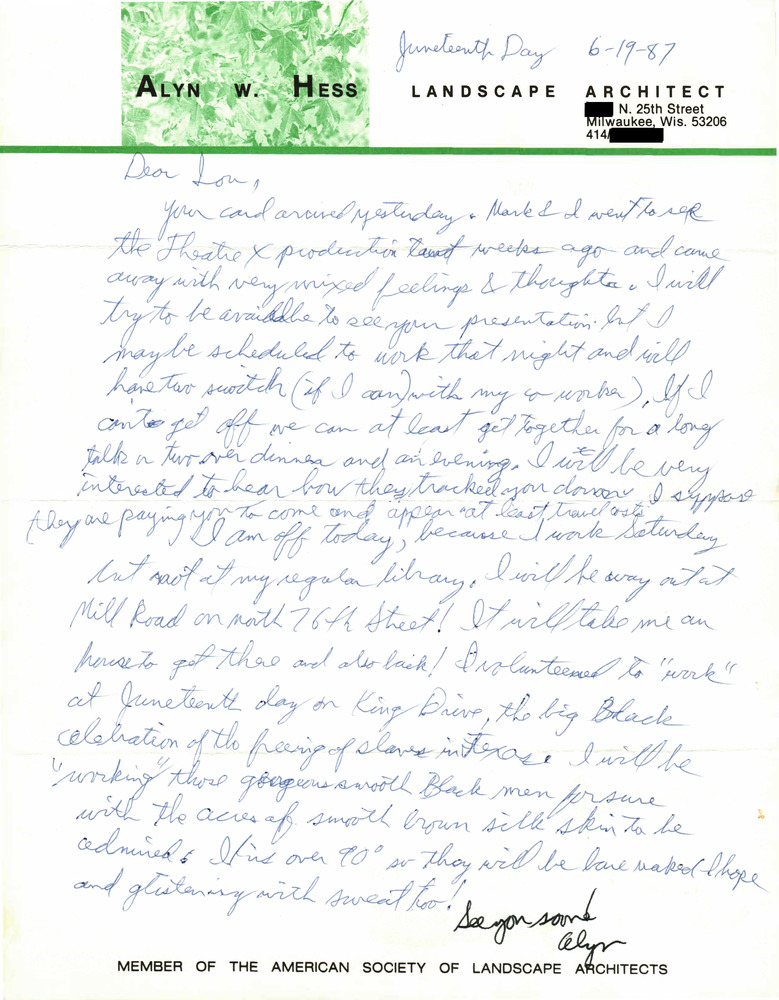 Juneteenth Day 6-19-87
ALYN W. HESS LANDSCAPE ARCHITECT
N. 25th Street
Milwaukee, Wis. 53206
414/
Dear Lou,
Your card arrived yesterday. Mark & I went to see
the Theatre X production weeks ago and came
away with very mixed feelings & thoughts. I will
try to be available to see your presentation. but I
maybe scheduled to work that night and will
have two switch (if I can) with my co worker). If I
can't get off we can at least get together for a long
talk or two over dinner and an evening. I will be very
interested to hear how they tracked you down. I suppose
they are paying you to come and appear at least, travel costs
I am off today, because I work Saturday
but not at my regular library. I will be way out at
Mill Road on north 76th Street! It will take me an
hour to get there and also back! I volunteered to "work"
at Juneteenth day on King Drive, the big Black
celebration of the freeing of slaves in Texas. I will be
"working" those gorgeous smooth Black men for sure
with the acres of smooth brown silk skin to be
admired. It is over 90° so they will be bare naked I hope
and glistening with sweat too!
See you soon!
Alyn
MEMBER OF THE AMERICAN SOCIETY OF LANDSCAPE ARCHITECTS